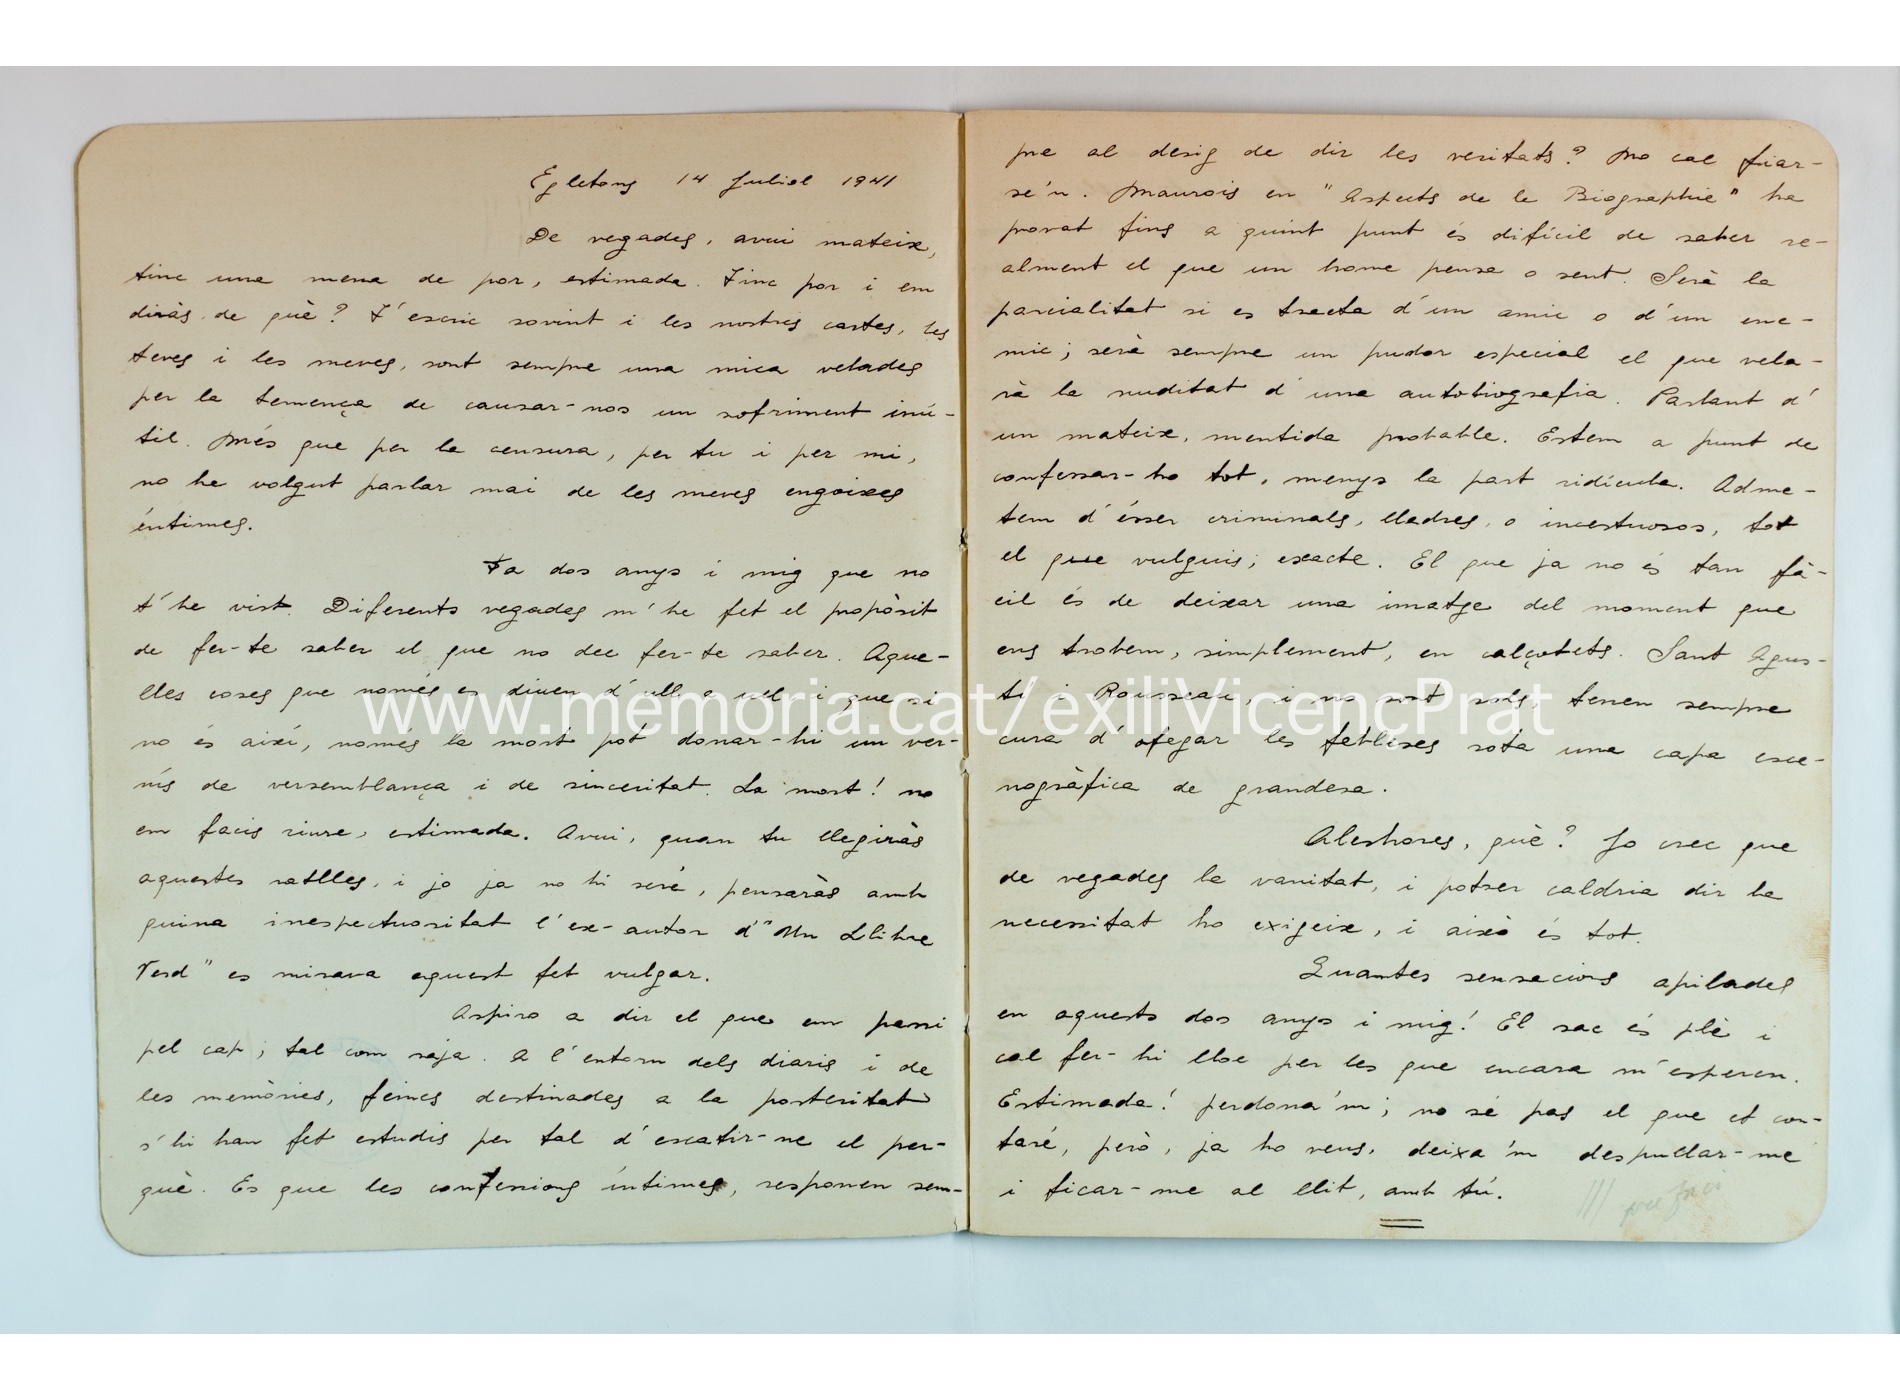 Egletons 14 Juliol 1941
De vegades, avui mateix,
tinc una mena de por, estimada. Tinc por i em
diràs de què? T'escric sovint i les nostres cartes, les
teves i les meves, sont sempre una mica velades
per la temença de causar-nos un sofriment inú-
til. Més que per la censura, per tu i per mi,
no he volgut parlar mai de les meves engoixes
íntimes.
Fa dos anys i mig que no
t'he vist. Diferents vegades m'he fet el propòsit
de fer-te saber el que no dec fer-te saber. Aque-
lles coses que només es diuen d'ull a ull i que si
no és així, només la mort pot donar-hi un ver-
nís de versemblança i de sinceritat. La mort! no
em facis riure, estimada. Avui, quan tu llegiràs
aquestes ratlles, i jo ja no hi seré, pensaràs amb
quina inespectuositat l'ex-autor d'"Un Llibre
Verd" es mirava aquest fet vulgar.
Aspiro a dir el que em passi
pel cap; tal com raja. A l'entorn dels diaris i de
les memòries, feines destinades a la posteritat
s'hi han fet estudis per tal d'escatir-ne el per-
què. Es que les confessions íntimes, responen sem-
pre al desig de dir les veritats? No cal fiar-
se'n. Maurois en "Aspects de la Biographie" ha
provat fins a quint punt és difícil de saber re-
alment el que un home pensa o sent. Serà la
parcialitat si es tracta d'un amic o d'un ene-
mic; serà sempre un pudor especial el que vela-
rà la nuditat d'una autobiografia. Parlant d'
un mateix, mentida probable. Estem a punt de
confessar-ho tot, menys la part ridícula. Adme-
tem d'ésser criminals, lladres, o incestuosos, tot
el que vulguis; exacte. El que ja no és tan fà-
cil és de deixar una imatge del moment que
ens trobem, simplement, en calçotets. Sant Agus-
tí i Rousseau, i no sont sols, tenen sempre
cura d'ofegar les febleses sota una capa esce-
nogràfica de grandesa.
Aleshores, què? Jo crec que
de vegades la vanitat, i potser caldria dir la
necessitat ho exigeix, i això és tot.
Quantes sensacions apilades
en aquests dos anys i mig! El sac és plè i
cal fer-hi lloc per les que encara m'esperen.
Estimada! perdona'm; no sé pas el que et con-
taré, però, ja ho veus, deixa'm despullar-me
i ficar-me al llit, amb tú.
www.memoria.cat/exiliVicencPrat